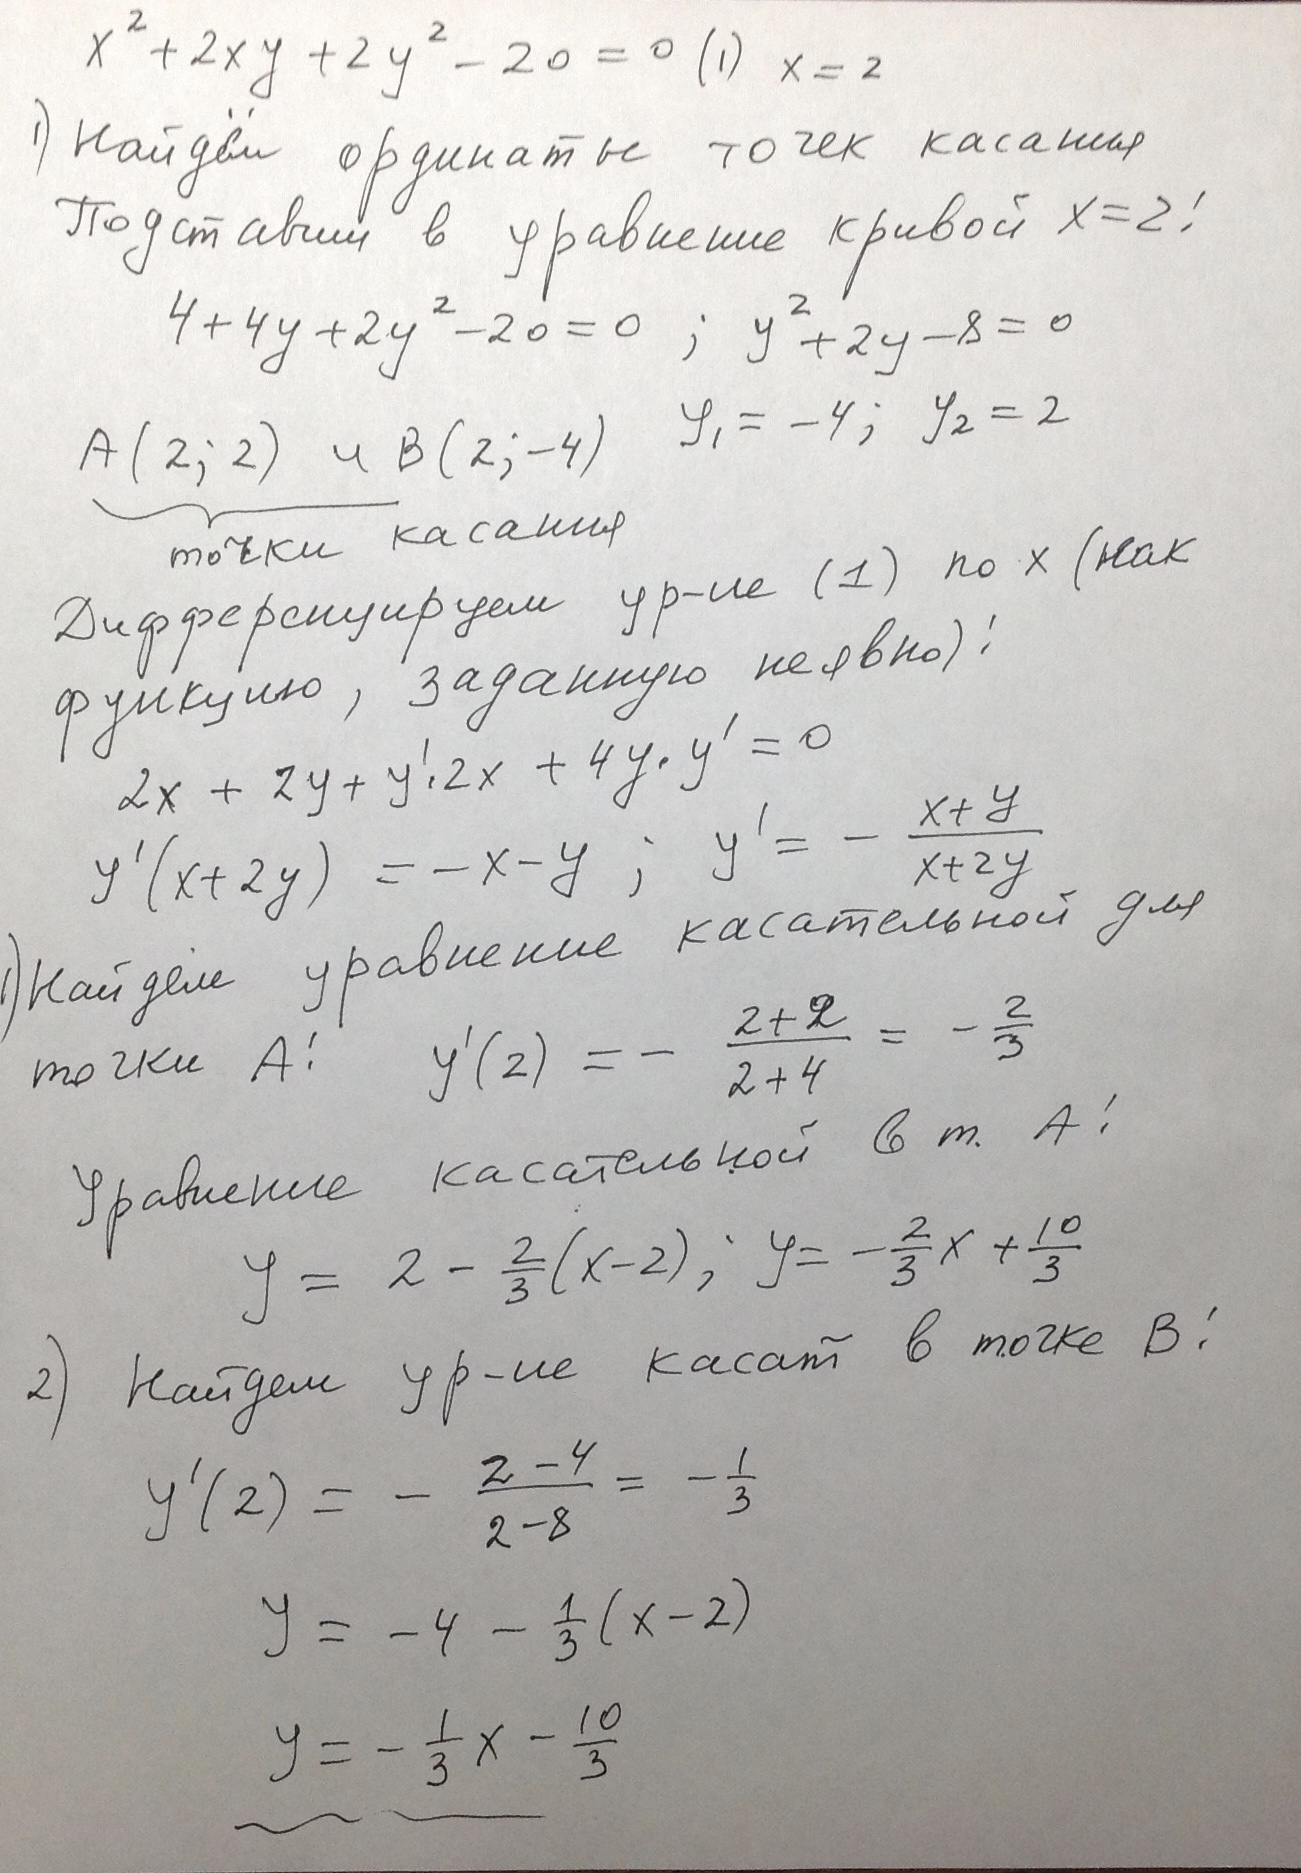 x² + 2xy + 2y² - 20 = 0 (1) x = 2
1) Найдём ординаты точек касания
Подставим в уравнение кривой x = 2:
4 + 4y + 2y² - 20 = 0 ; y² + 2y - 8 = 0
y₁ = -4; y₂ = 2
A(2; 2) и B(2; -4)
точки касания
Дифференцируем ур-ие (1) по x (как
функцию, заданную неявно):
2x + 2y + y'·2x + 4y·y' = 0
y'(x+2y) = -x-y ; y' = - (x+y)/(x+2y)
1) Найдём уравнение касательной для
точки A: y'(2) = - (2+2)/(2+4) = - 2/3
Уравнение касательной в т. A:
y = 2 - 2/3 (x-2); y = - 2/3 x + 10/3
2) Найдем ур-ие касат в точке B:
y'(2) = - (2-4)/(2-8) = - 1/3
y = -4 - 1/3 (x-2)
y = - 1/3 x - 10/3